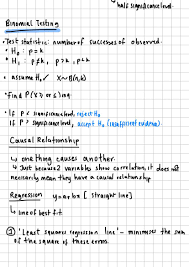 half significance level.
Binomial Testing
• Test statistic: number of successes observed.
• H₀: p = k
• H₁: p ≠ k, p > k, p < k
• assume H₀ ✓ X~B(n,k)
• Find P(X ≥ or ≤) ing.
• If P < significance level, reject H₀
• If P > significance level, accept H₀ (insufficient evidence)
Causal Relationship
↳ one thing causes another.
↳ Just because 2 variables show correlation, it does not
necessarily mean they have a causal relationship
Regression y = a + bx [straight line]
↳ line of best fit.
① 'Least squares regression line' - minimises the sum
of the square of these errors.